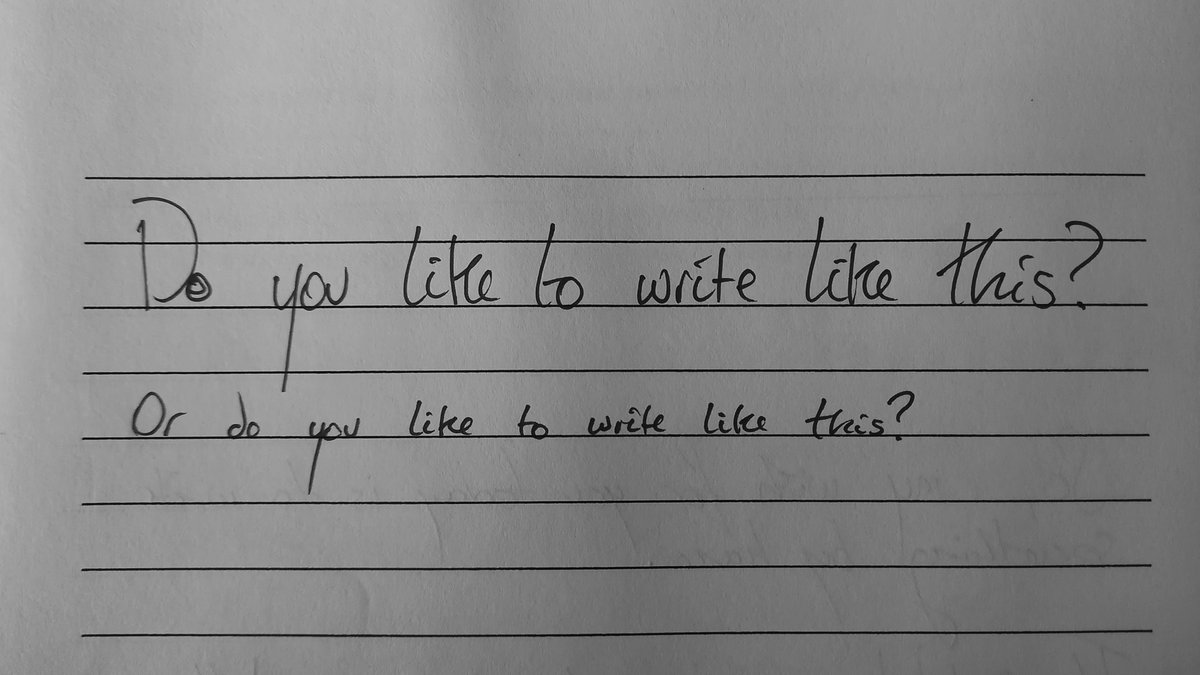 Do you like to write like this?
Or do you like to write like this?